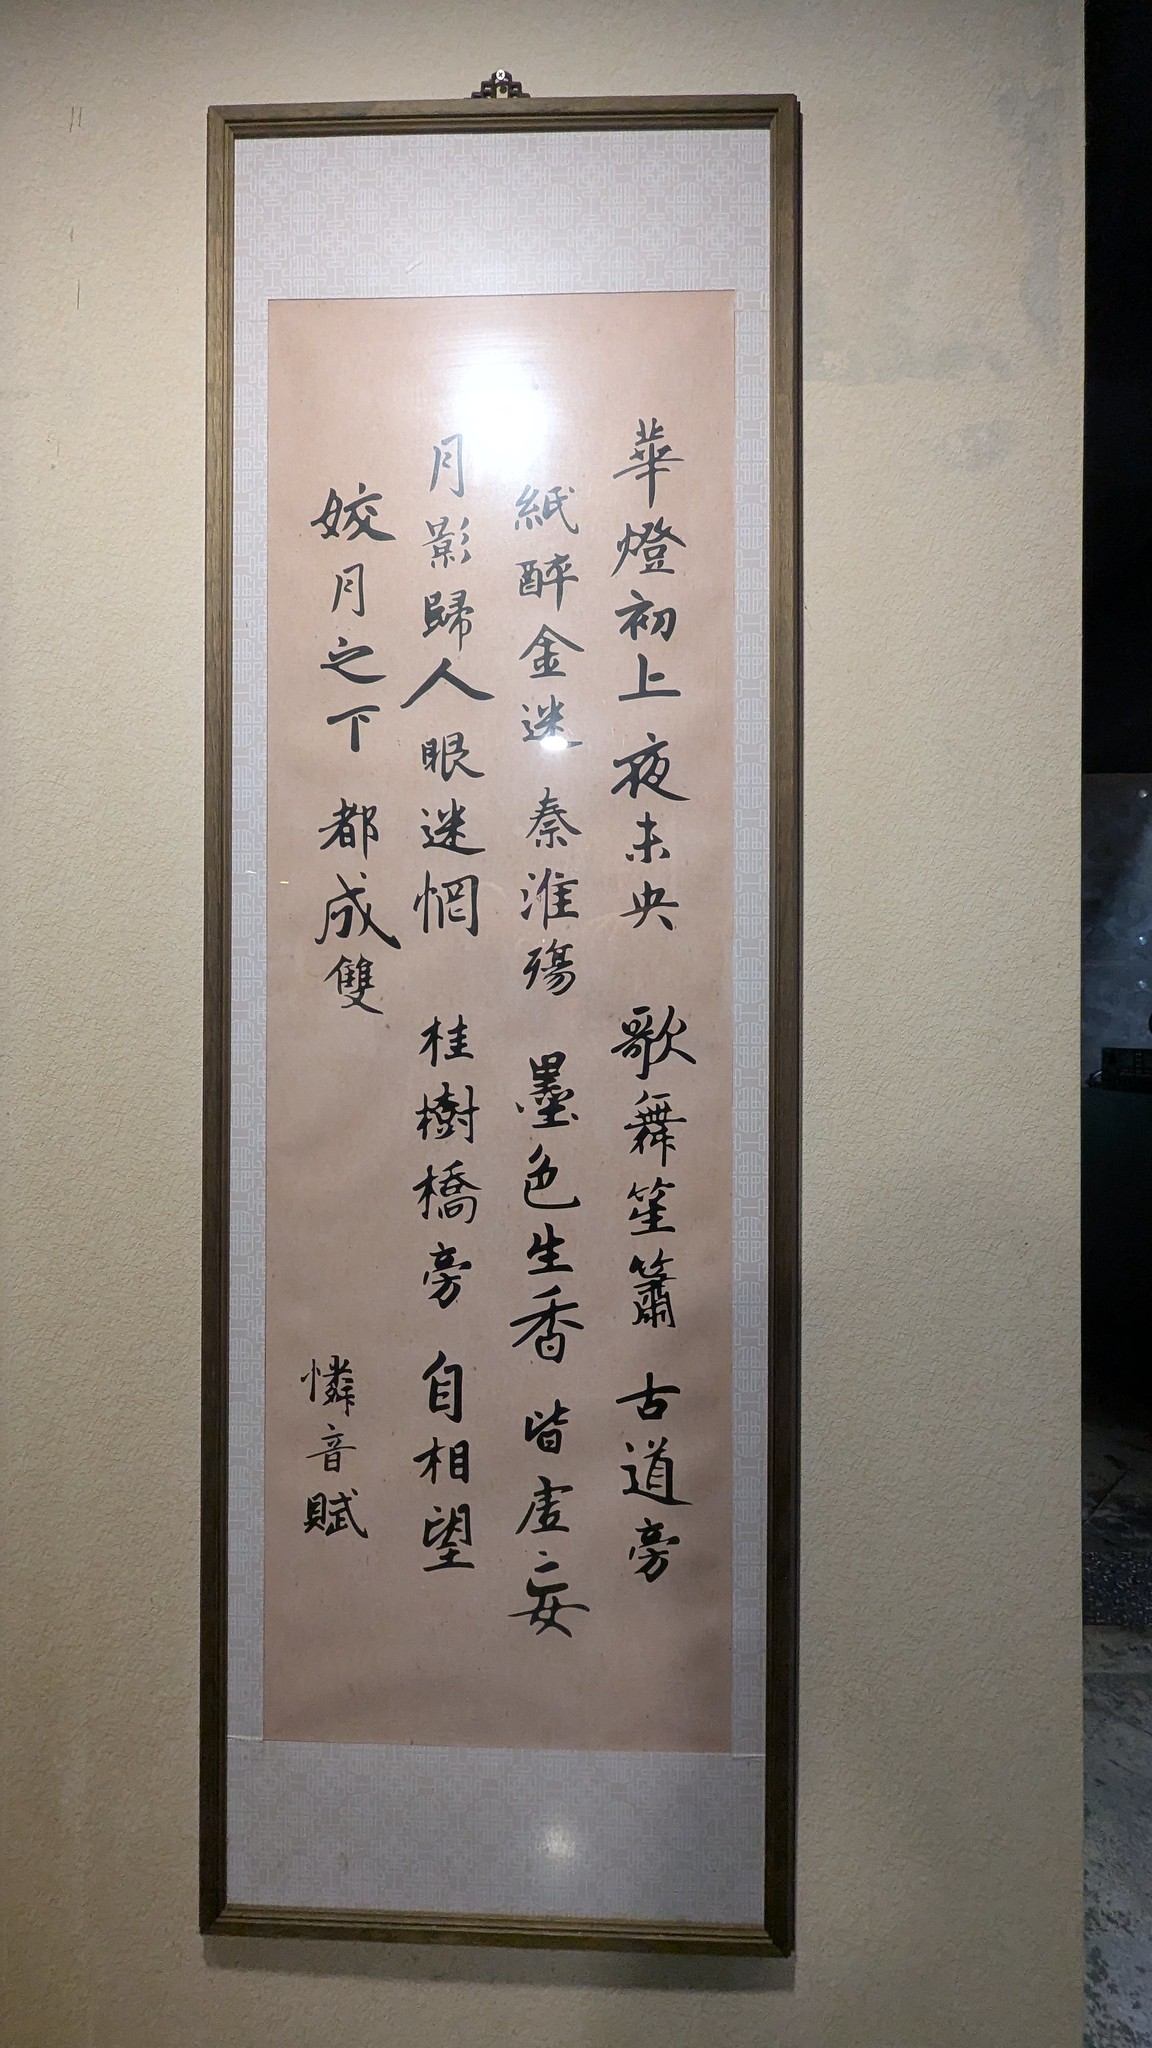 華燈初上夜未央 歌舞笙簫 古道旁
紙醉金迷 秦淮殤 墨色生香 皆虛妄
月影歸人眼迷惘 桂樹橋旁 自相望
姣月之下 都成雙
憐音賦